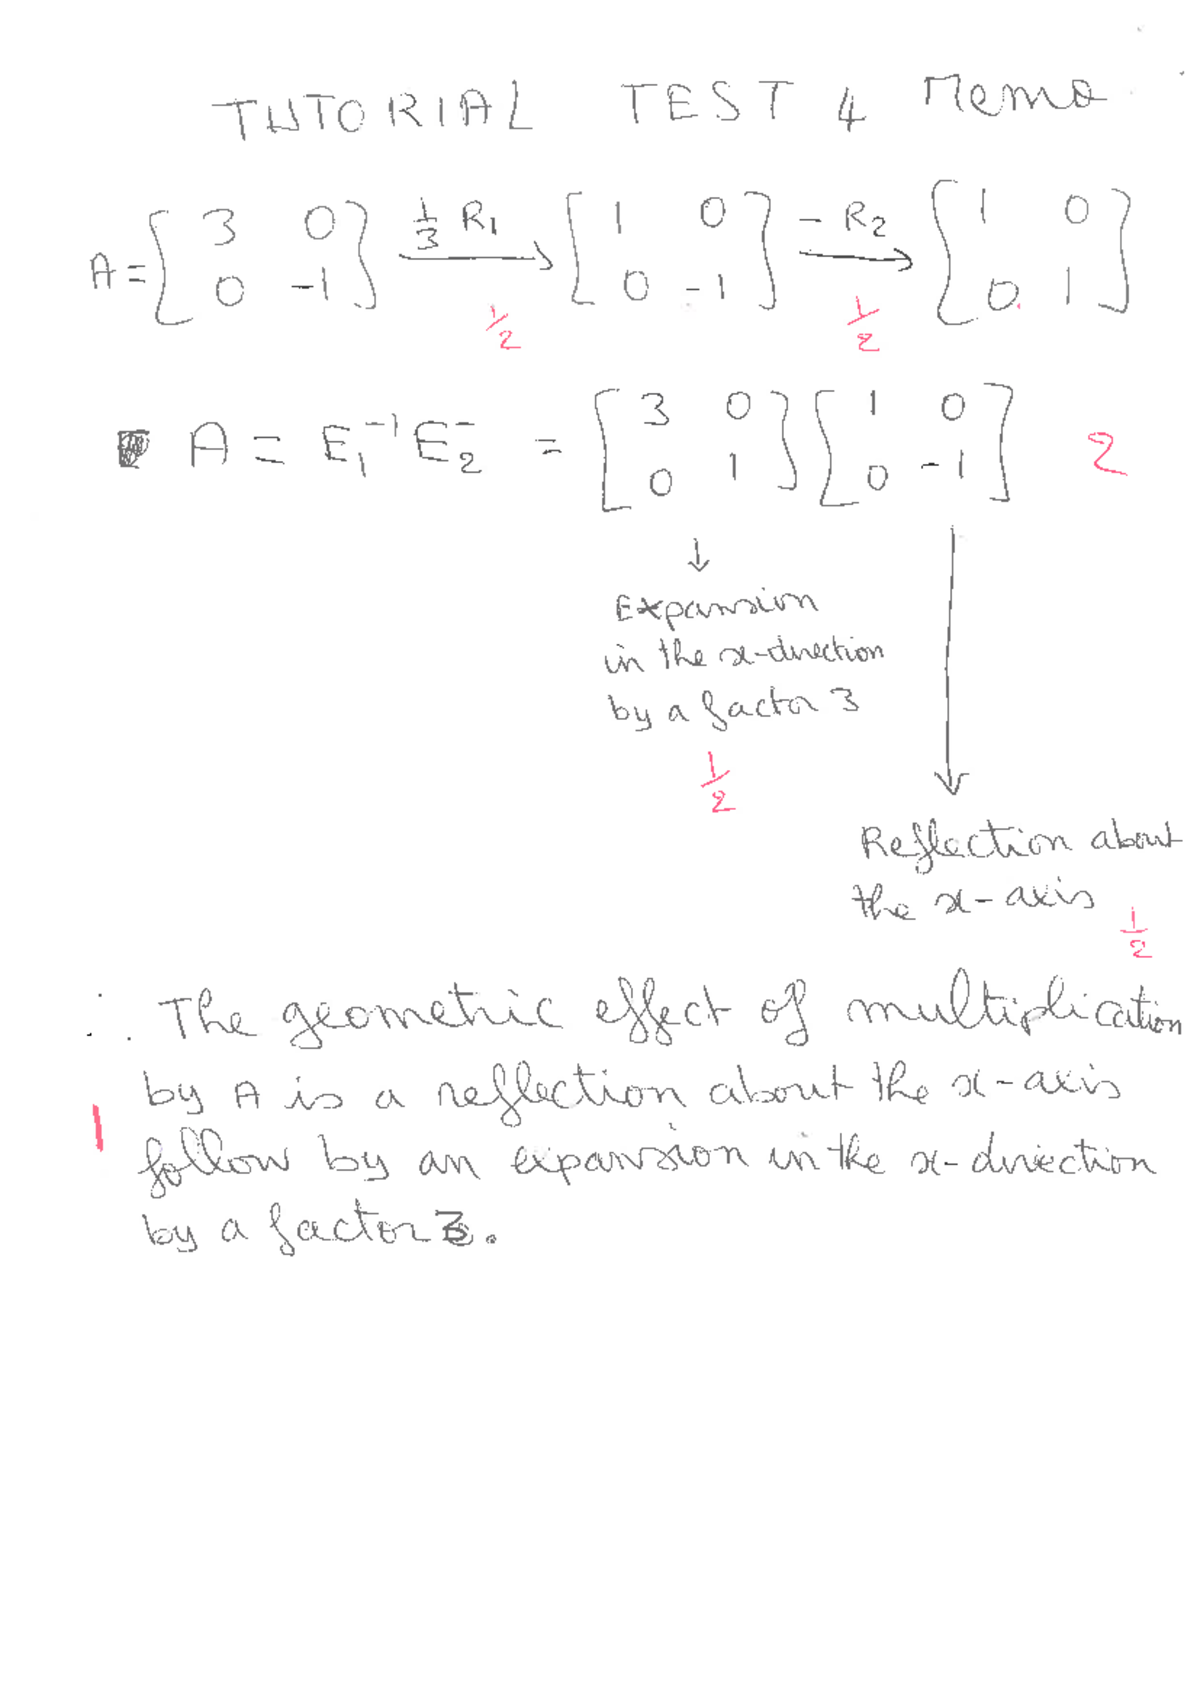 TUTORIAL TEST 4 Memo
A = [3 0; 0 -1] 1/3 R₁ → [1 0; 0 -1] - R₂ → [1 0; 0 1]
1/2 1/2
A = E₁⁻¹ E₂⁻ = [3 0; 0 1] [1 0; 0 -1] 2
↓
Expansion
in the x-direction
by a factor 3
1/2
Reflection about
the x-axis
1/2
∴ The geometric effect of multiplication
by A is a reflection about the x-axis
1
follow by an expansion in the x-direction
by a factor 3.